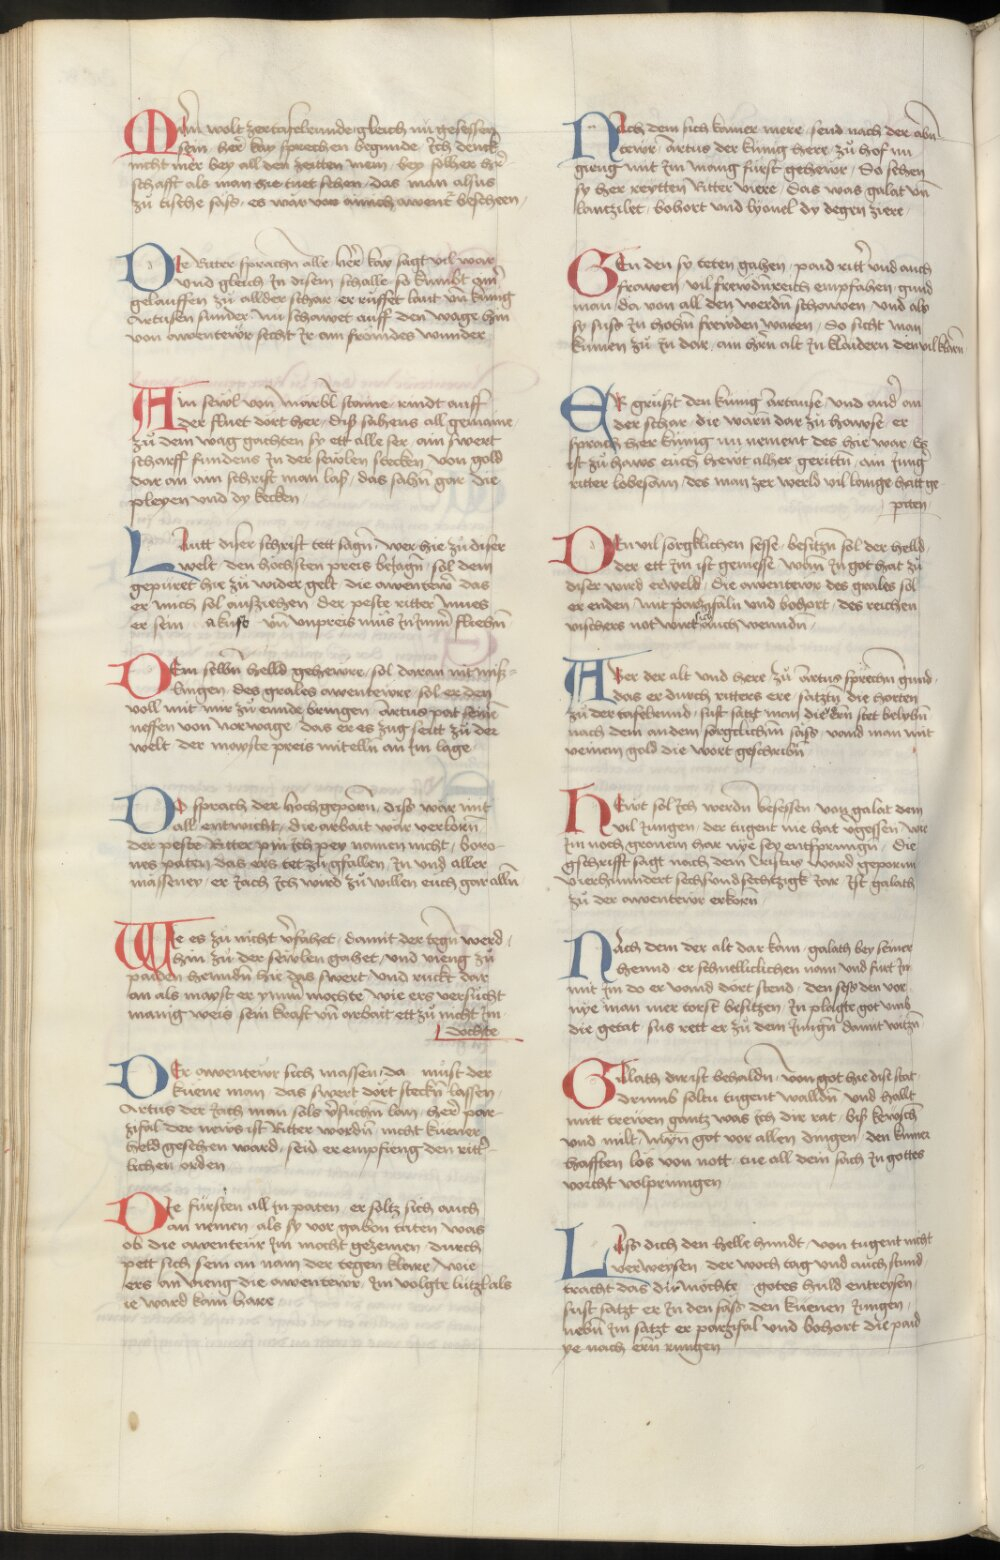 Man wolt zertafelrunde gleich nu gesessen
sein . her kay sprechen begunde . Ich denck
nicht mer bey all den zeitten mein . bey solher her
schafft als man hie tuet sehen . das man alsus
zu tische sass . es war von awent beschehen .
Die Ritter sprachn alle . her kay sagt vil war
Vnd gleich In disem schalle . so kumbt ainr
gelauffen zu allder schar . er ruffet laut vn kunig
Artusen sunder . nu schawet auff den wage hin
von awentewr secht Ir ain fromdes wunder .
Ain sewl von marbl staine . rindt auff
der fluet dort her . diss sahens all gemaine .
zu dem wag gachten sy ett alle ser . ain swert
scharff fundens In der sewlen stecken . von gold
dar an ain schrifft man lass . das sahn gar die
pleyen vnd dy kecken .
Lautt diser schrifft tett sagn . wer hie zu diser
welt . den hochsten preis beiagn . sol dem
gepuret hie zu wider gelt . die awentewr das
er mich sol ausziehen . der peste ritter mues
er sein . vn vnpreis mus In Imer fliehn
Dem selbn helld gehewre . sol daran nit miss-
lingen . des grales awentewre . sol er den
voll mit mir zu ennde bringen . Artus pat seinn
neffen von norwage . das er es zug seitt zu der
welt . der mayste preis mitelln an Im lage .
Do sprach der hochgeporn . diss war mit
all entwicht . die arbait war verlorn
der peste Ritter pin Ich pey namen nicht . boro-
nes paten das ers tet zu gfallen . In vnd aller
masseney . er Iach Ich wird zu willen euch gar alln
Wie es zu nicht vfahet . damit der tegn werd .
hin zu der sewlen gahet . vnd vieng zu
paiden henndn hie das swert . vnd ruckt dar
an als mayst er ymmer mochte . wie ers versucht
manig weis sein krafft vn arbait ett zu nicht Im
dochte
Der awentewr sich massen . da muest der
kuene man . das swert dort steckn lassen .
Artus der Iach man sols versuchn lan . her par-
zifal der news ist Ritter wordn . nicht kuener
held gesehen ward . seid er empfieng den ritt-
lichen orden
Die fursten all In paten . er soltz sich auch
an nemen . als sy vor gaben taten was
ob die awenteur Im mocht gezemen . durch
pett sich sein an nam der tegen klare . wie
ers an vieng die awentewr . Im volgte lutzl als
ie ward kain hare
Nach dem sich kainer mere . send nach der abn-
tewr . artus der kunig here . zu hof nu
gieng mit Im manig furst gehewr . Do sehen
sy her reytten Ritter viere . das was galat vn
lantzilet . bohort vnd lyonel dy degen ziere .
Gen den sy teten gahen . paid ritter vnd auch
frawen . vil frewdnreich empfahen . gund
man da von all den werdn schawen . vnd als
sy suss In hohn frewden waren . Do sicht man
kumen zu In dar . ain hern alt In klaidern den vil klarn
Er gruszt den kunig Artause . vnd ander an
der schar . die warn dar zu hawse . er
sprach her kunig nu nement des hie war . Es
ist zu haws euch hewt alher gerittn . ain Iung
ritter lobesam . des man zer werld vil lannge hatt ge-
piten .
Den vil sorgklichen sesse . besitzn sol der helld
der ett Im ist gemesse . wann In got hat zu
diser wird erweld . die awentewr des grales sol
er enden . mit parzifaln vnd bohort . des reichen
vischers not wirt auch wenndn .
Aber der alt vnd here . zu artus sprechn gund .
das er durch ritters ere . satztn die horten
zu der tafelrund . sust satzt man die ern stet belybn
nach dem andern sorgclichm sass . vand man mit
veinem gold die wort geschribn
Hewt sol Ich werdn besessen . von galat dem
vil Iungen . der tugent nie hat vgessen . wie
Im noch gronem har nye sey entsprungn . Die
gschrifft sagt nach dem Cristus ward geporn
vierhunndert sechsundsechtzigk Iar . Ist galath
zu der awentewr erkorn .
Nach dem der alt dar kam . galath bey seiner
hennd . er schnelliclichen nam . vnd furt In
mit Im do er vand dort stend . den sess den vor
nye man mer torst besitzen . In plagte got vmb
die getat . sus rett er zu dem Iungn damit witzn .
Gallath dar ist behaldn . von got hie dise stat .
drumb soltu tugent walldn . vnd hallt
mitt trewen gantz was Ich dir rat . biss kewsch
vnd milt . mynn got vor allen dingen . den kumer
hafften los von nott . tue all dein sach In gottes
vorcht volpringen
Lass dich den helle hundt . von tugent nicht
verweysen . der woch tag vnd auch stund
tracht das dir mochte . gotes huld entreysen .
sust satzt er In den sass den kuenen Iungen .
nebn Im satzt er parzifal vnd bohort die paid
ye nach ern rungen